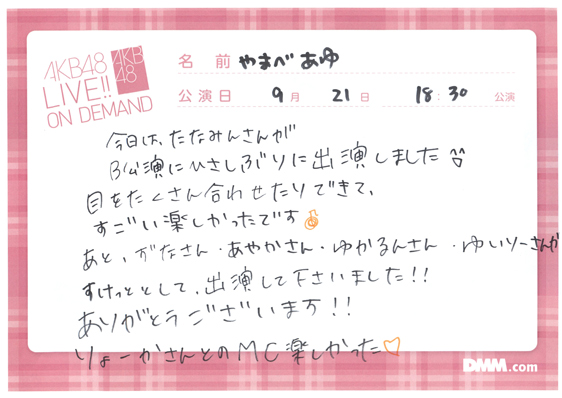 AKB48
LIVE!!
ON DEMAND
AKB
48
名 前 やまべあゆ
公演日 9月 21日 18:30 公演
今日は、たなみんさんが
B公演にひさしぶりに出演しました
目をたくさん合わせたりできて、
すごい楽しかったです
あと、かなさん・あやかさん・ゆかるんさん・ゆいりーさんが
すけっととして、出演して下さいました!!
ありがとうございます!!
りょーかさんとのMC楽しかった♡
DMM.com